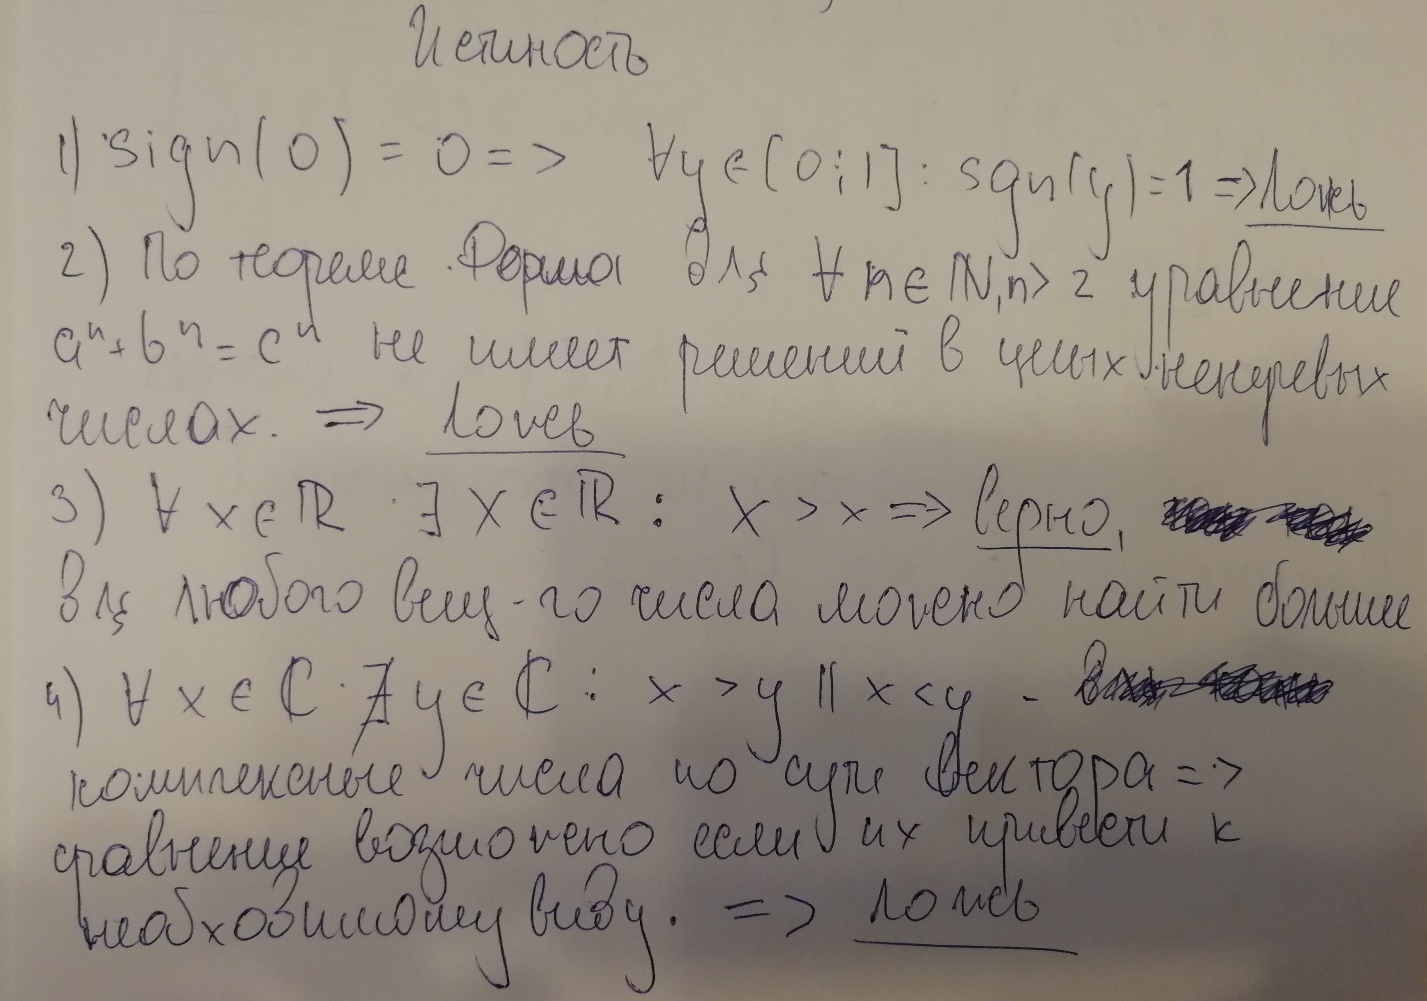 Истиность
1) sign(0) = 0 => ∀y∈[0;1]: sgn(y)=1 => ложь
2) По теореме Ферма для ∀ n∈ℕ, n>2 уравнение
aⁿ+bⁿ=cⁿ не имеет решений в целых ненулевых
числах. => ложь
3) ∀ x∈ℝ ∃ X∈ℝ : X > x => верно,
для любого вещ-го числа можно найти больше
4) ∀ x∈ℂ ∄ y∈ℂ : x > y || x < y -
комплексные числа по сути вектора =>
сравнение возможно если их привести к
необходимому виду. => ложь